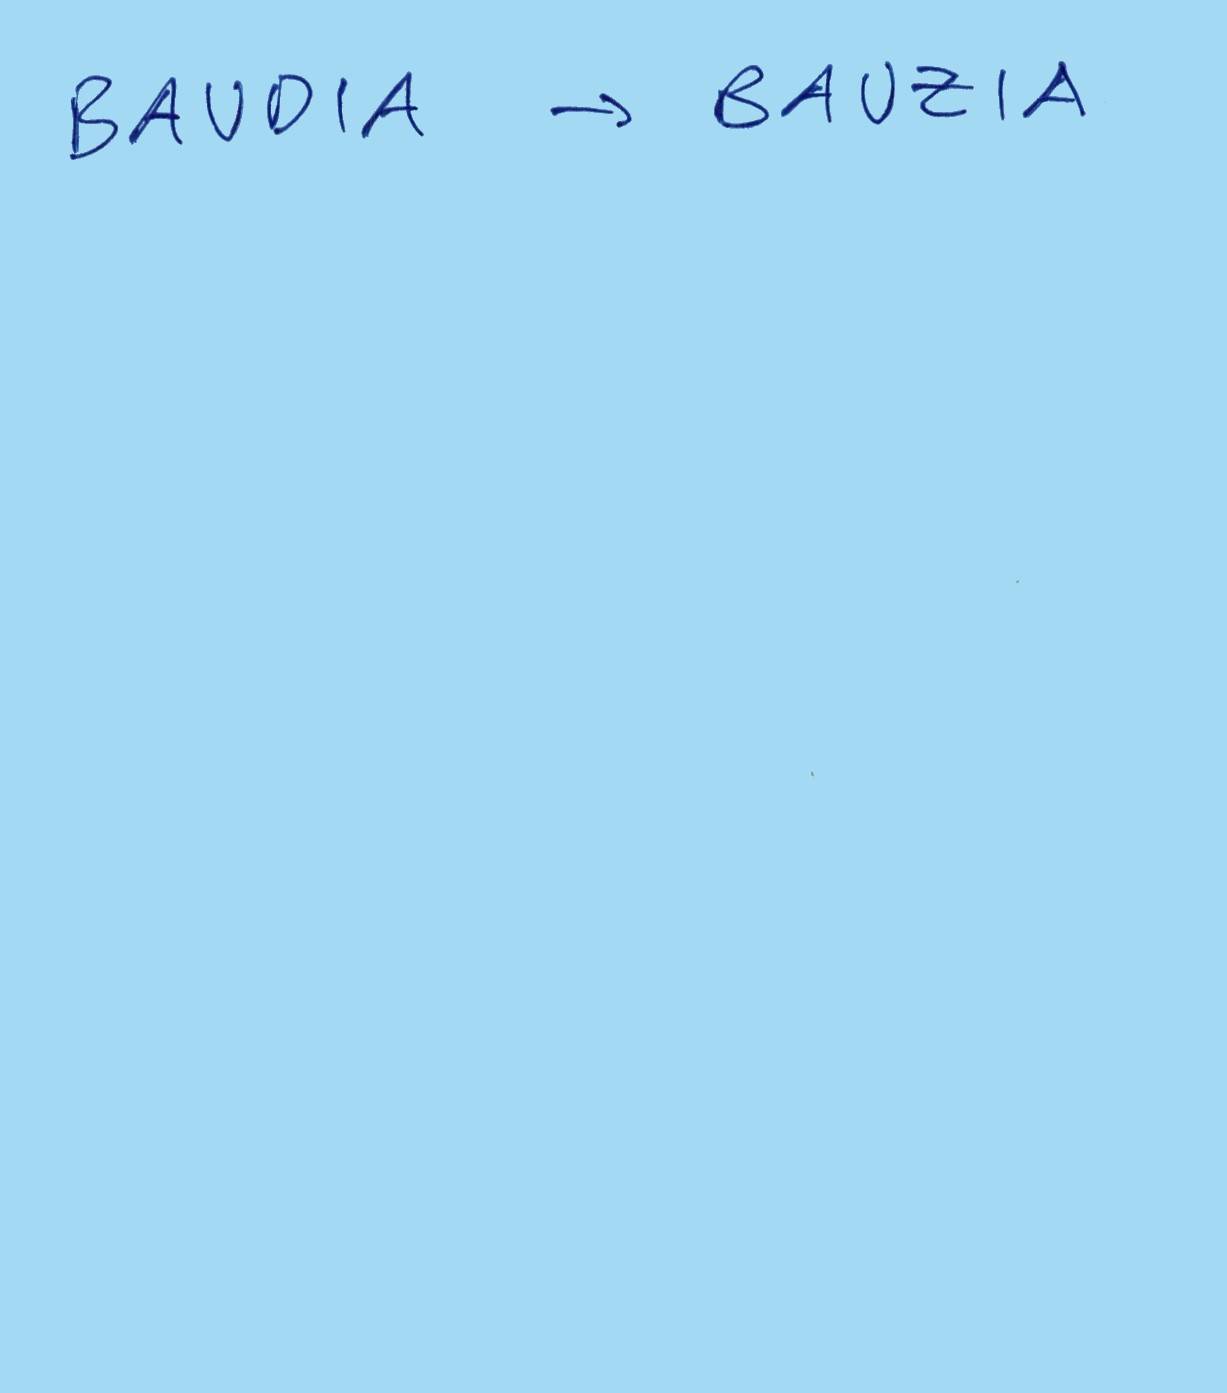 BAUDIA → BAUZIA